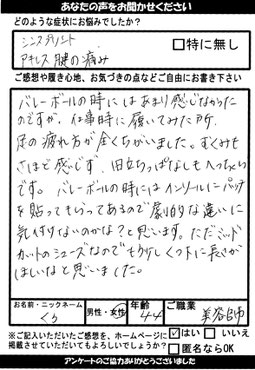 あなたの声をお聞かせください
どのような症状にお悩みでしたか?
シンスプリント
アキレス腱の痛み
□特に無し
ご感想や履き心地、お気づきの点などご自由にお書き下さい
バレーボールの時にはあまり感じなかった
のですが、仕事時に履いてみた所、
足の疲れ方が全くちがいました。むくみも
さほど感じず、1日立ちっぱなしもへっちゃら
です。バレーボールの時にはインソールにパッド
を貼ってもらってあるので劇的な違いに
気付けないのかな?と思います。ただミッド
カットのシューズなのでもう少しくつ下に長さが
ほしいなと思いました。
お名前・ニックネーム
くう
男性・女性
年齢
44
ご職業
美容師
※ご記入いただいたご感想を、ホームページに
掲載させていただいてもよろしいでしょうか?
☑はい □いいえ
□匿名ならOK
アンケートのご協力ありがとうございました